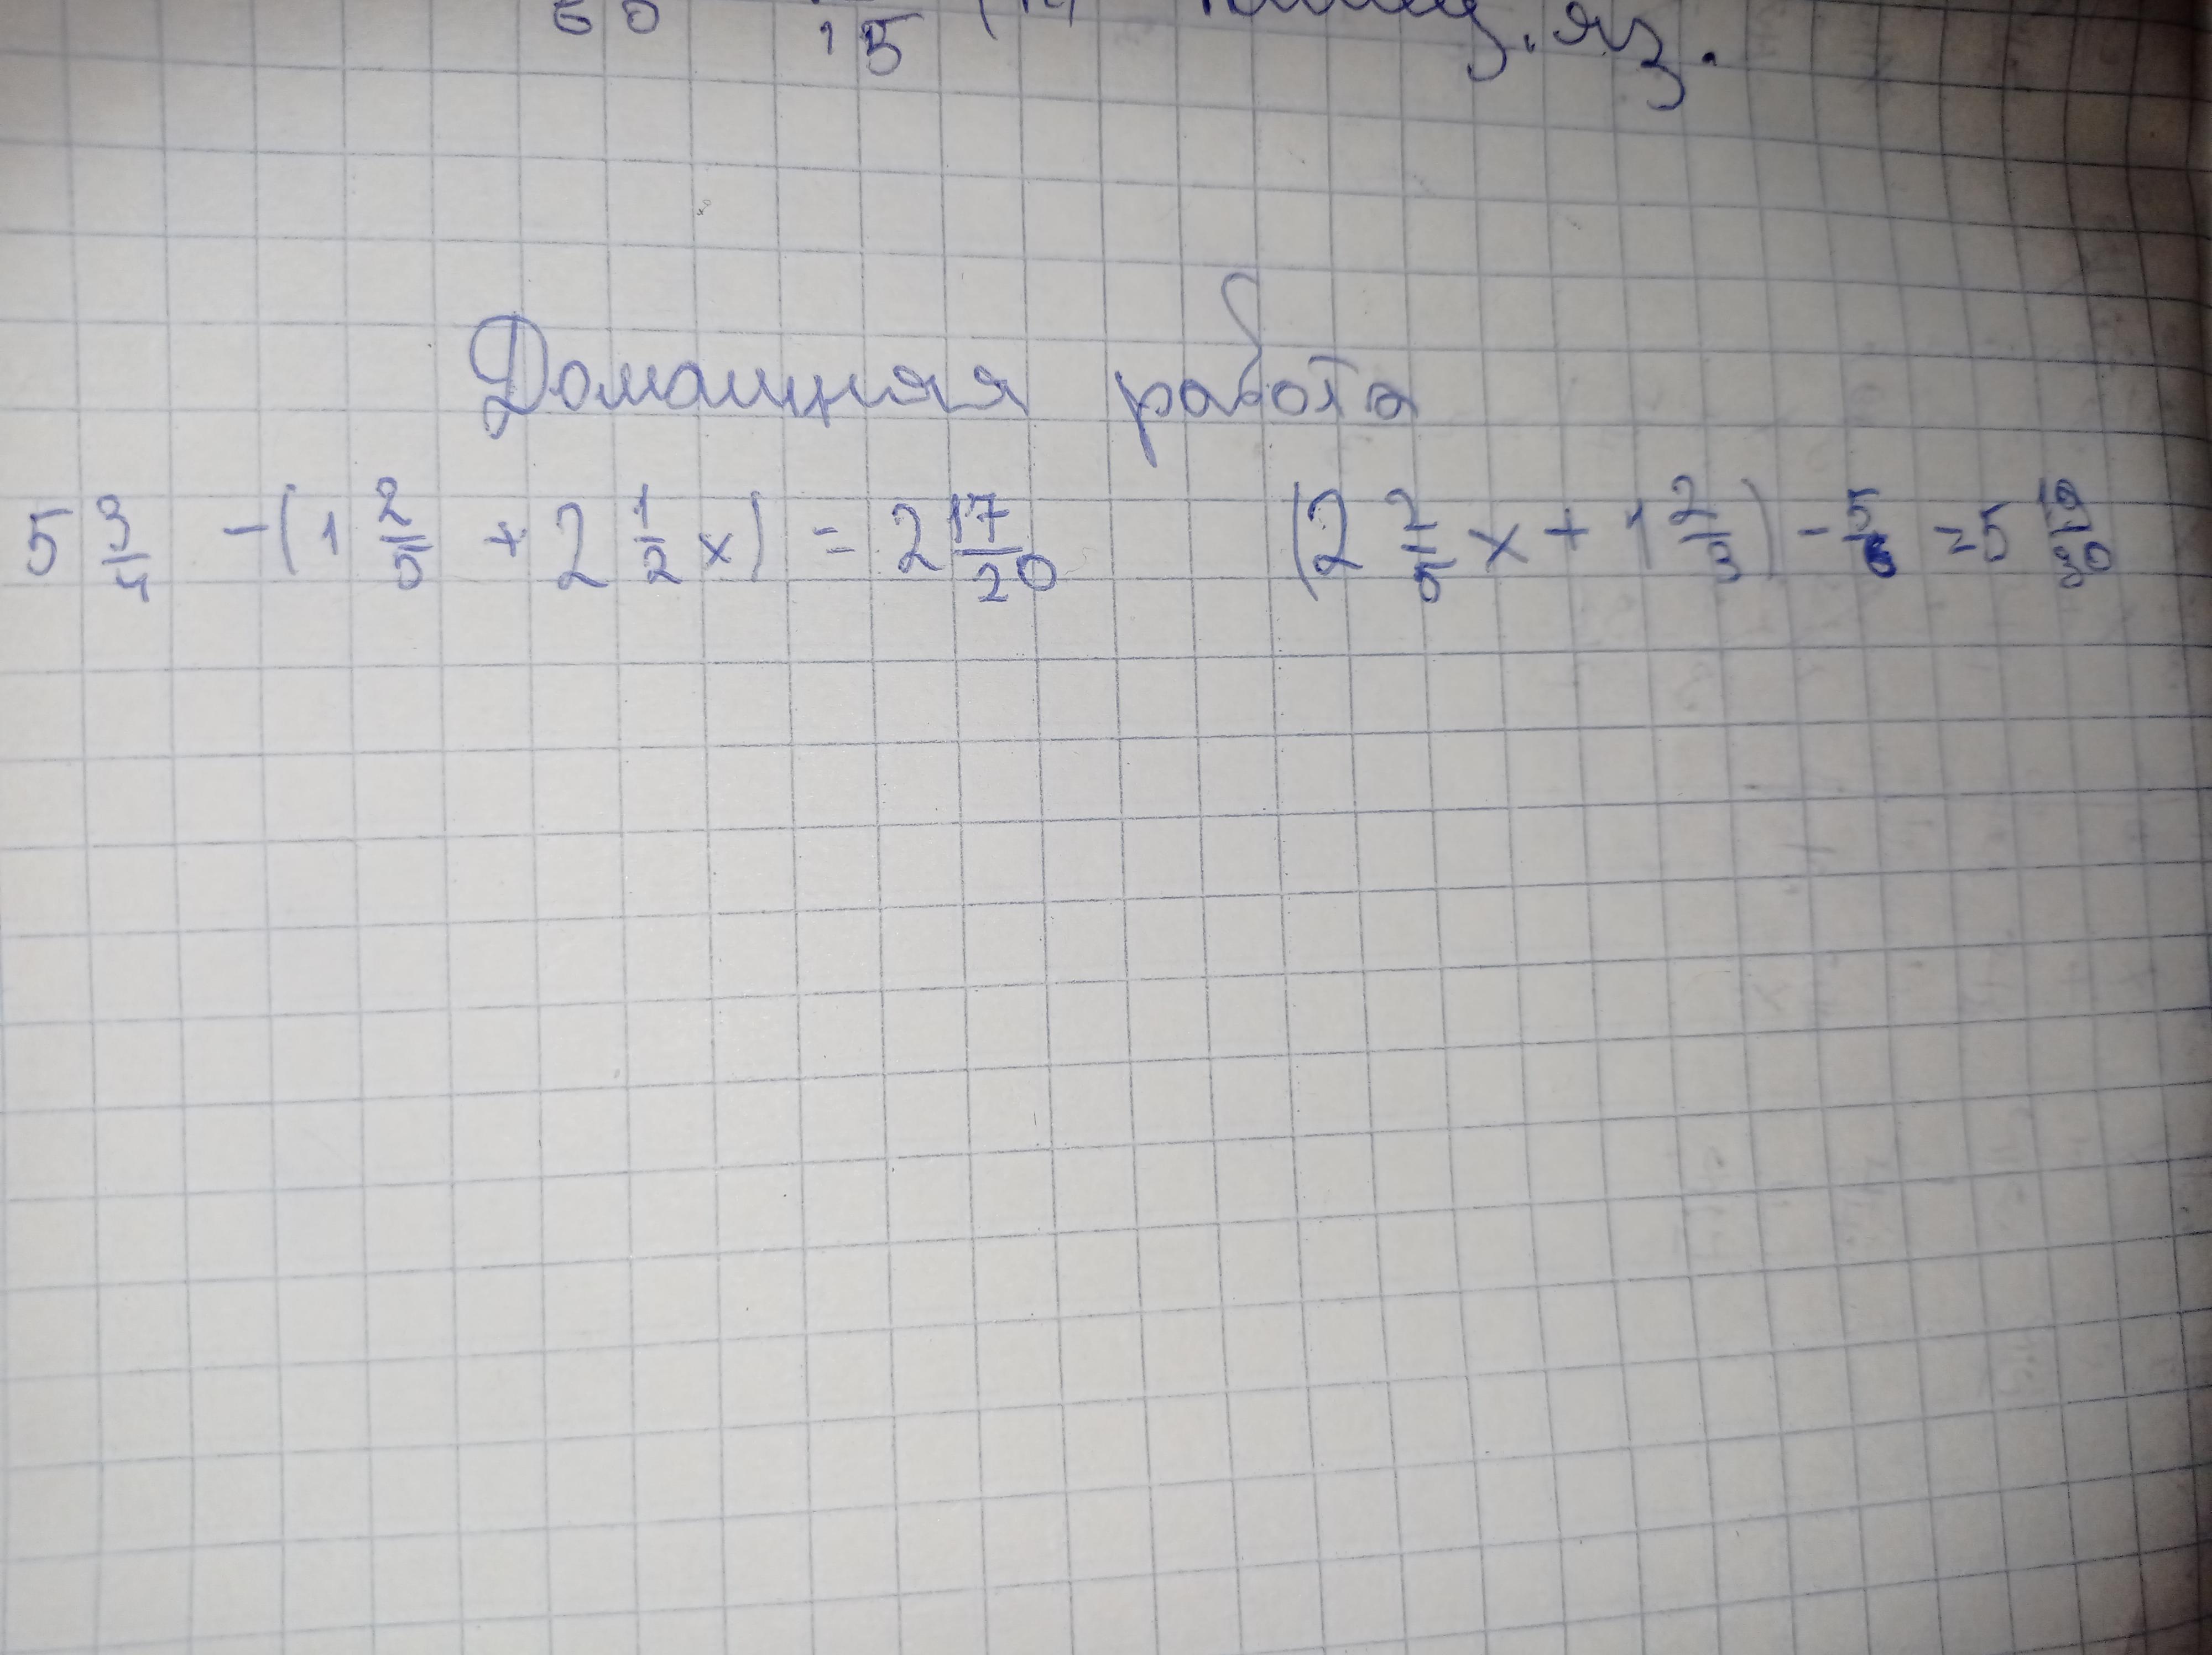 60 15
яз.
Домашняя работа
5 3/4 - (1 2/5 + 2 1/2 x) = 2 17/20 (2 2/5 x + 1 2/3) - 5/6 = 5 19/30